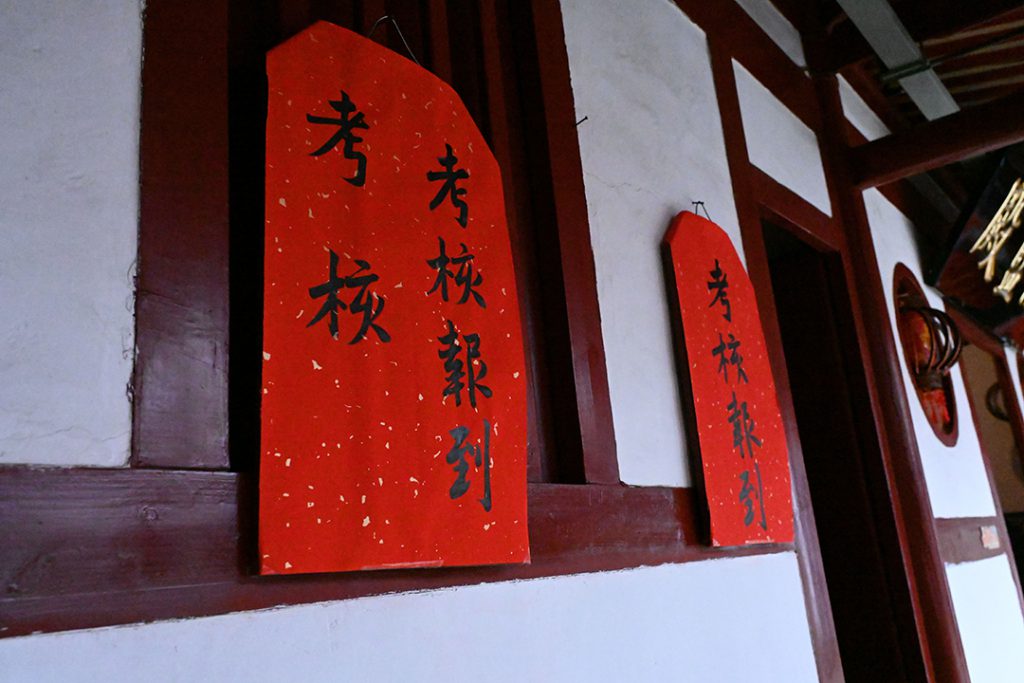 考核報到
考核
考核報到